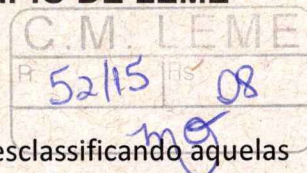 C.M. LEME
P. 52/15 fls 08
esclassificando aquelas